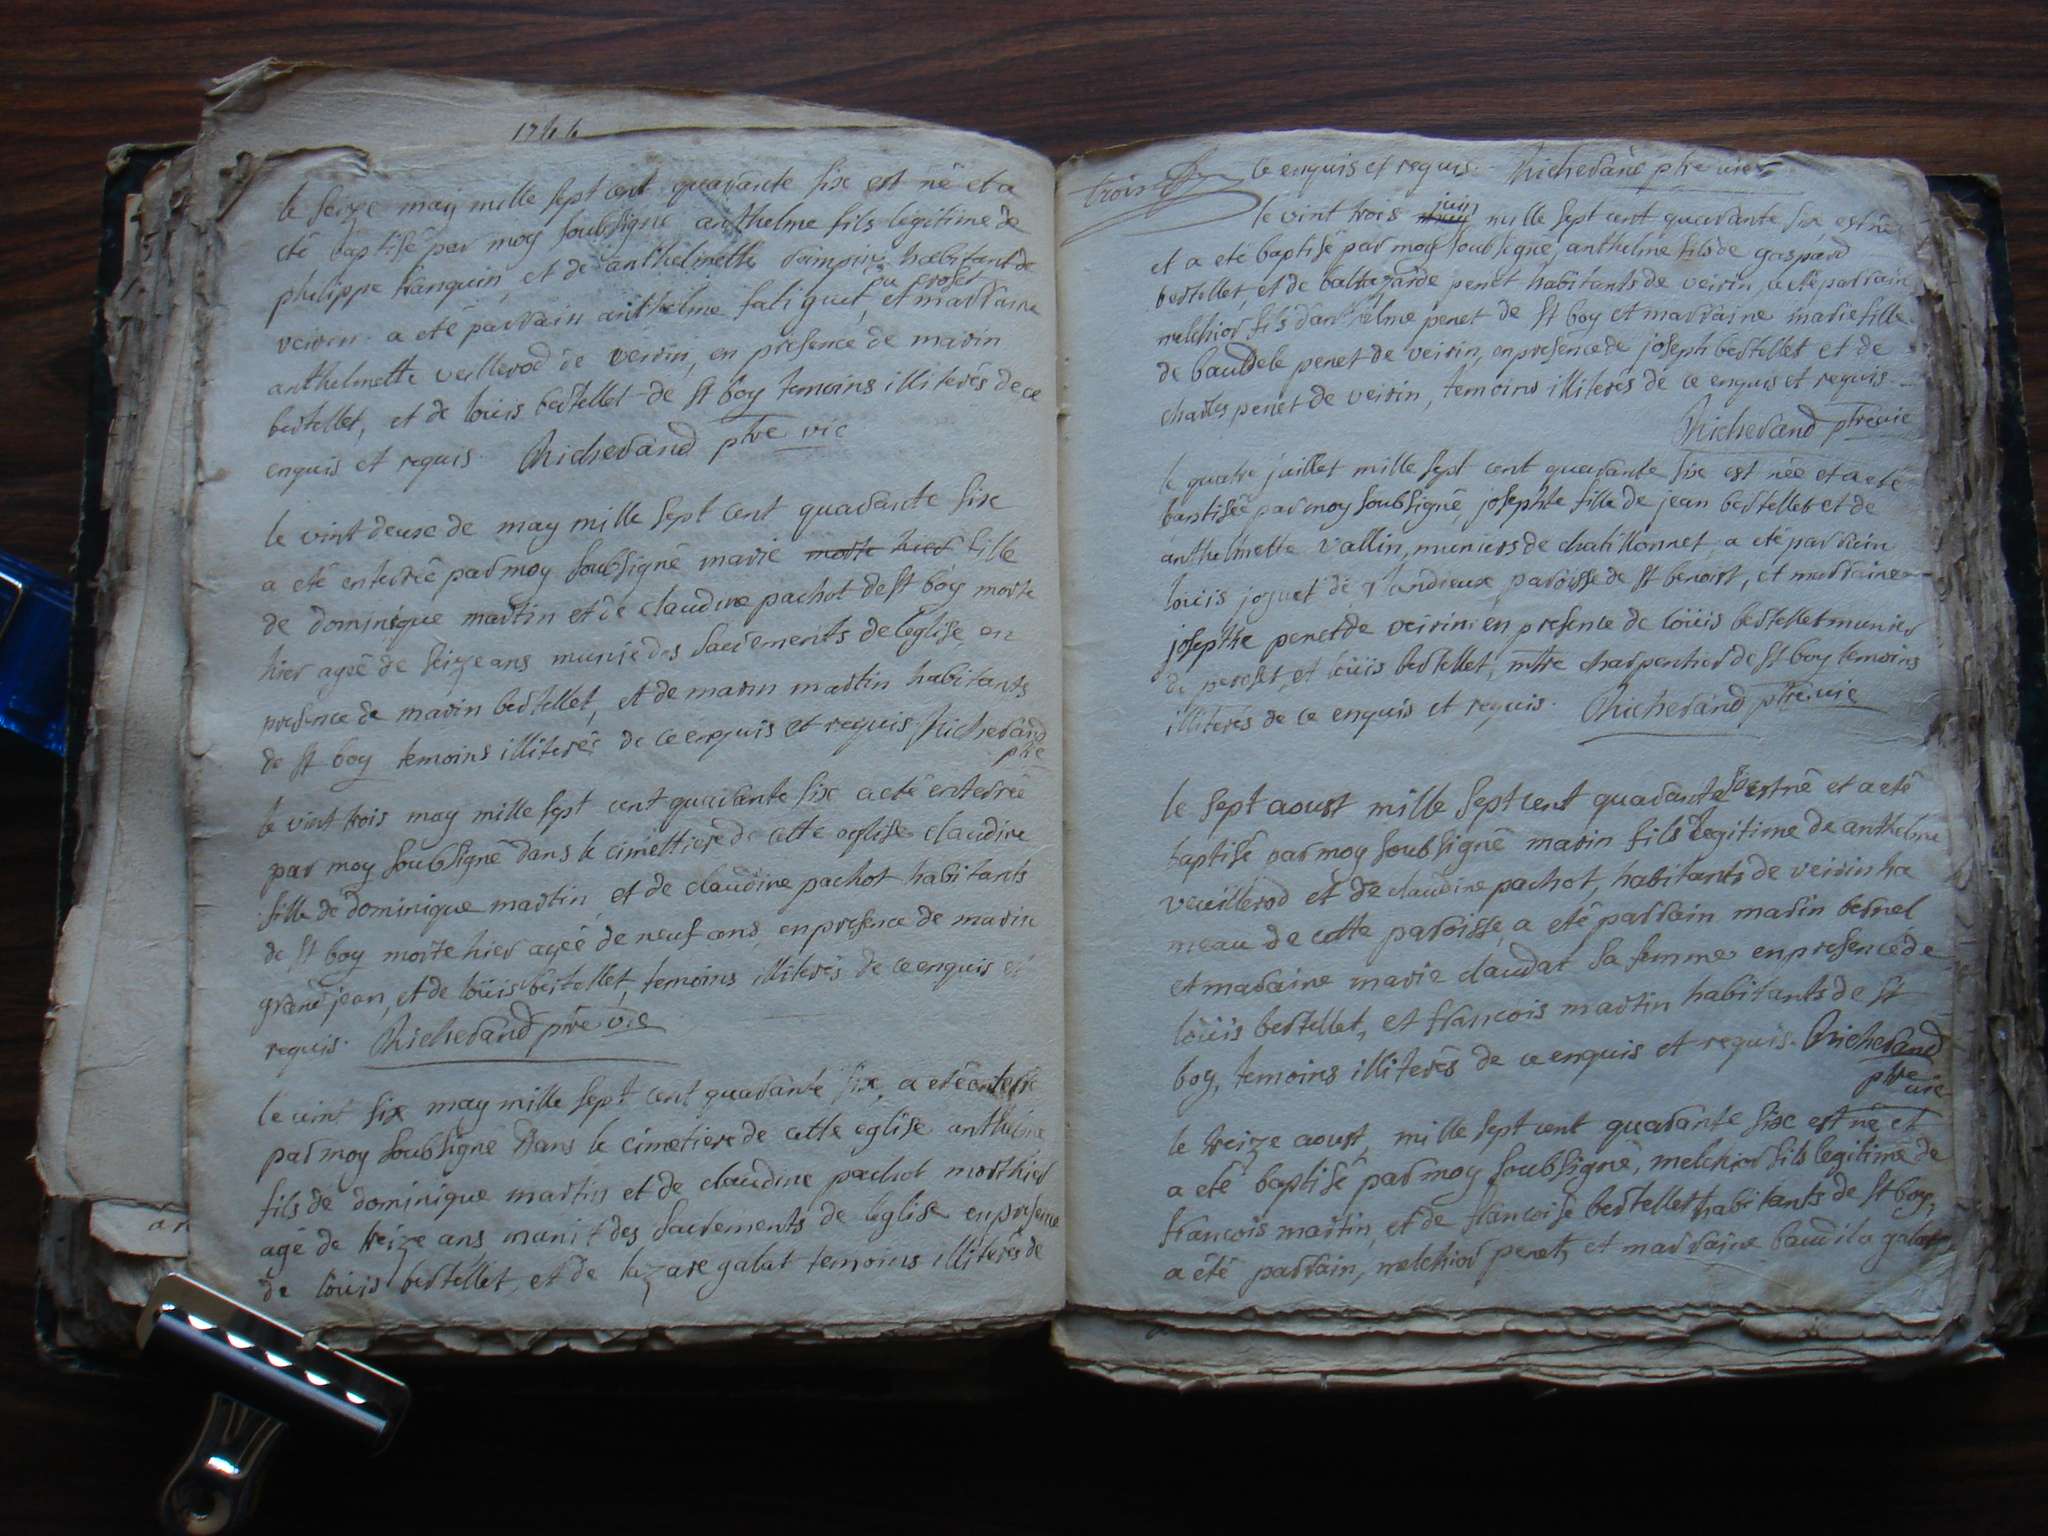 1746
le seize may mille sept cent quarante six est né et a
eté baptisé par moy soubsigné anthelme fils legitime de
philippe tranquin, et de anthelmette habitant de
veirin. a eté parrain anthelme fatiguet, du roset et marraine
anthelmette veillerod de veirin, en presence de marin
bertellet, et de loüis bertellet de st boy temoins illiterés de ce
enquis et requis. Richerand ptre vic
le vint deuxe de may mille sept cent quarante six
a eté enterrée par moy soubsigné marie morte hier fille
de dominique martin et de claudine pachot de st boy morte
hier ageé de seize ans munie des sacrements de leglise, en
presence de marin bertellet, et de marin martin habitants
de st boy temoins illiterés de ce enquis et requis. Richerand
ptre
le vint trois may mille sept cent quarante six a eté enterrée
par moy soubsigné dans le cimettiere de cette eglise claudine
fille de dominique martin, et de claudine pachot habitants
de st boy morte hier ageé de neuf ans, en presence de marin
grand jean, et de loüis bertellet, temoins illiterés de ce enquis et
requis. Richerand ptre vic
le vint six may mille sept cent quarante six, a eté enterré
par moy soubsigné dans le cimetiere de cette eglise anthelme
fils de dominique martin et de claudine pachot mort hier
agé de treize ans munit des sacrements de leglise en presence
de loüis bertellet, et de lazare galat temoins illiterés de
trois
ce enquis et requis. Richerand ptre vic
le vint trois juin mille sept cent quarante six est né
et a eté baptisé par moy soubsigné, anthelme fils de gaspard
bertellet, et de baltazarde penet habitants de veirin, a eté parrain
melchior fils danthelme penet de st boy et marraine marie fille
de baudele penet de veirin, en presence de joseph bertellet et de
charles penet de veirin, temoins illiterés de ce enquis et requis.
Richerand ptre vic
le quatre juillet mille sept cent quarante six est née et a eté
baptisée par moy soubsigné, josephte fille de jean bertellet et de
anthelmette vallin, muniers de chatillonnet, a eté parrain
loüis joguet de glandieux, paroisse de st benoist, et marraine
josephte penet de veirin: en presence de loüis bertellet munier
de peroset, et loüis bertellet, mtre charpentier de st boy temoins
illiterés de ce enquis et requis. Richerand ptre vic
le sept aoust mille sept cent quarante six est né et a eté
baptisé par moy soubsigné marin fils legitime de anthelme
veuillerod et de claudine pachot, habitants de veirin ha
meau de cette paroisse, a eté parrain marin bernel
et maraine marie claudat sa femme en presence de
loüis bertellet, et francois martin habitants de st
boy, temoins illiterés de ce enquis et requis. Richerand
ptre vic
le treize aoust, mille sept cent quarante six est né et
a eté baptisé par moy soubsigné, melchior fils legitime de
francois martin, et de francoise bertellet habitants de st boy,
a été parrain, melchior penet, et marraine baudila galat